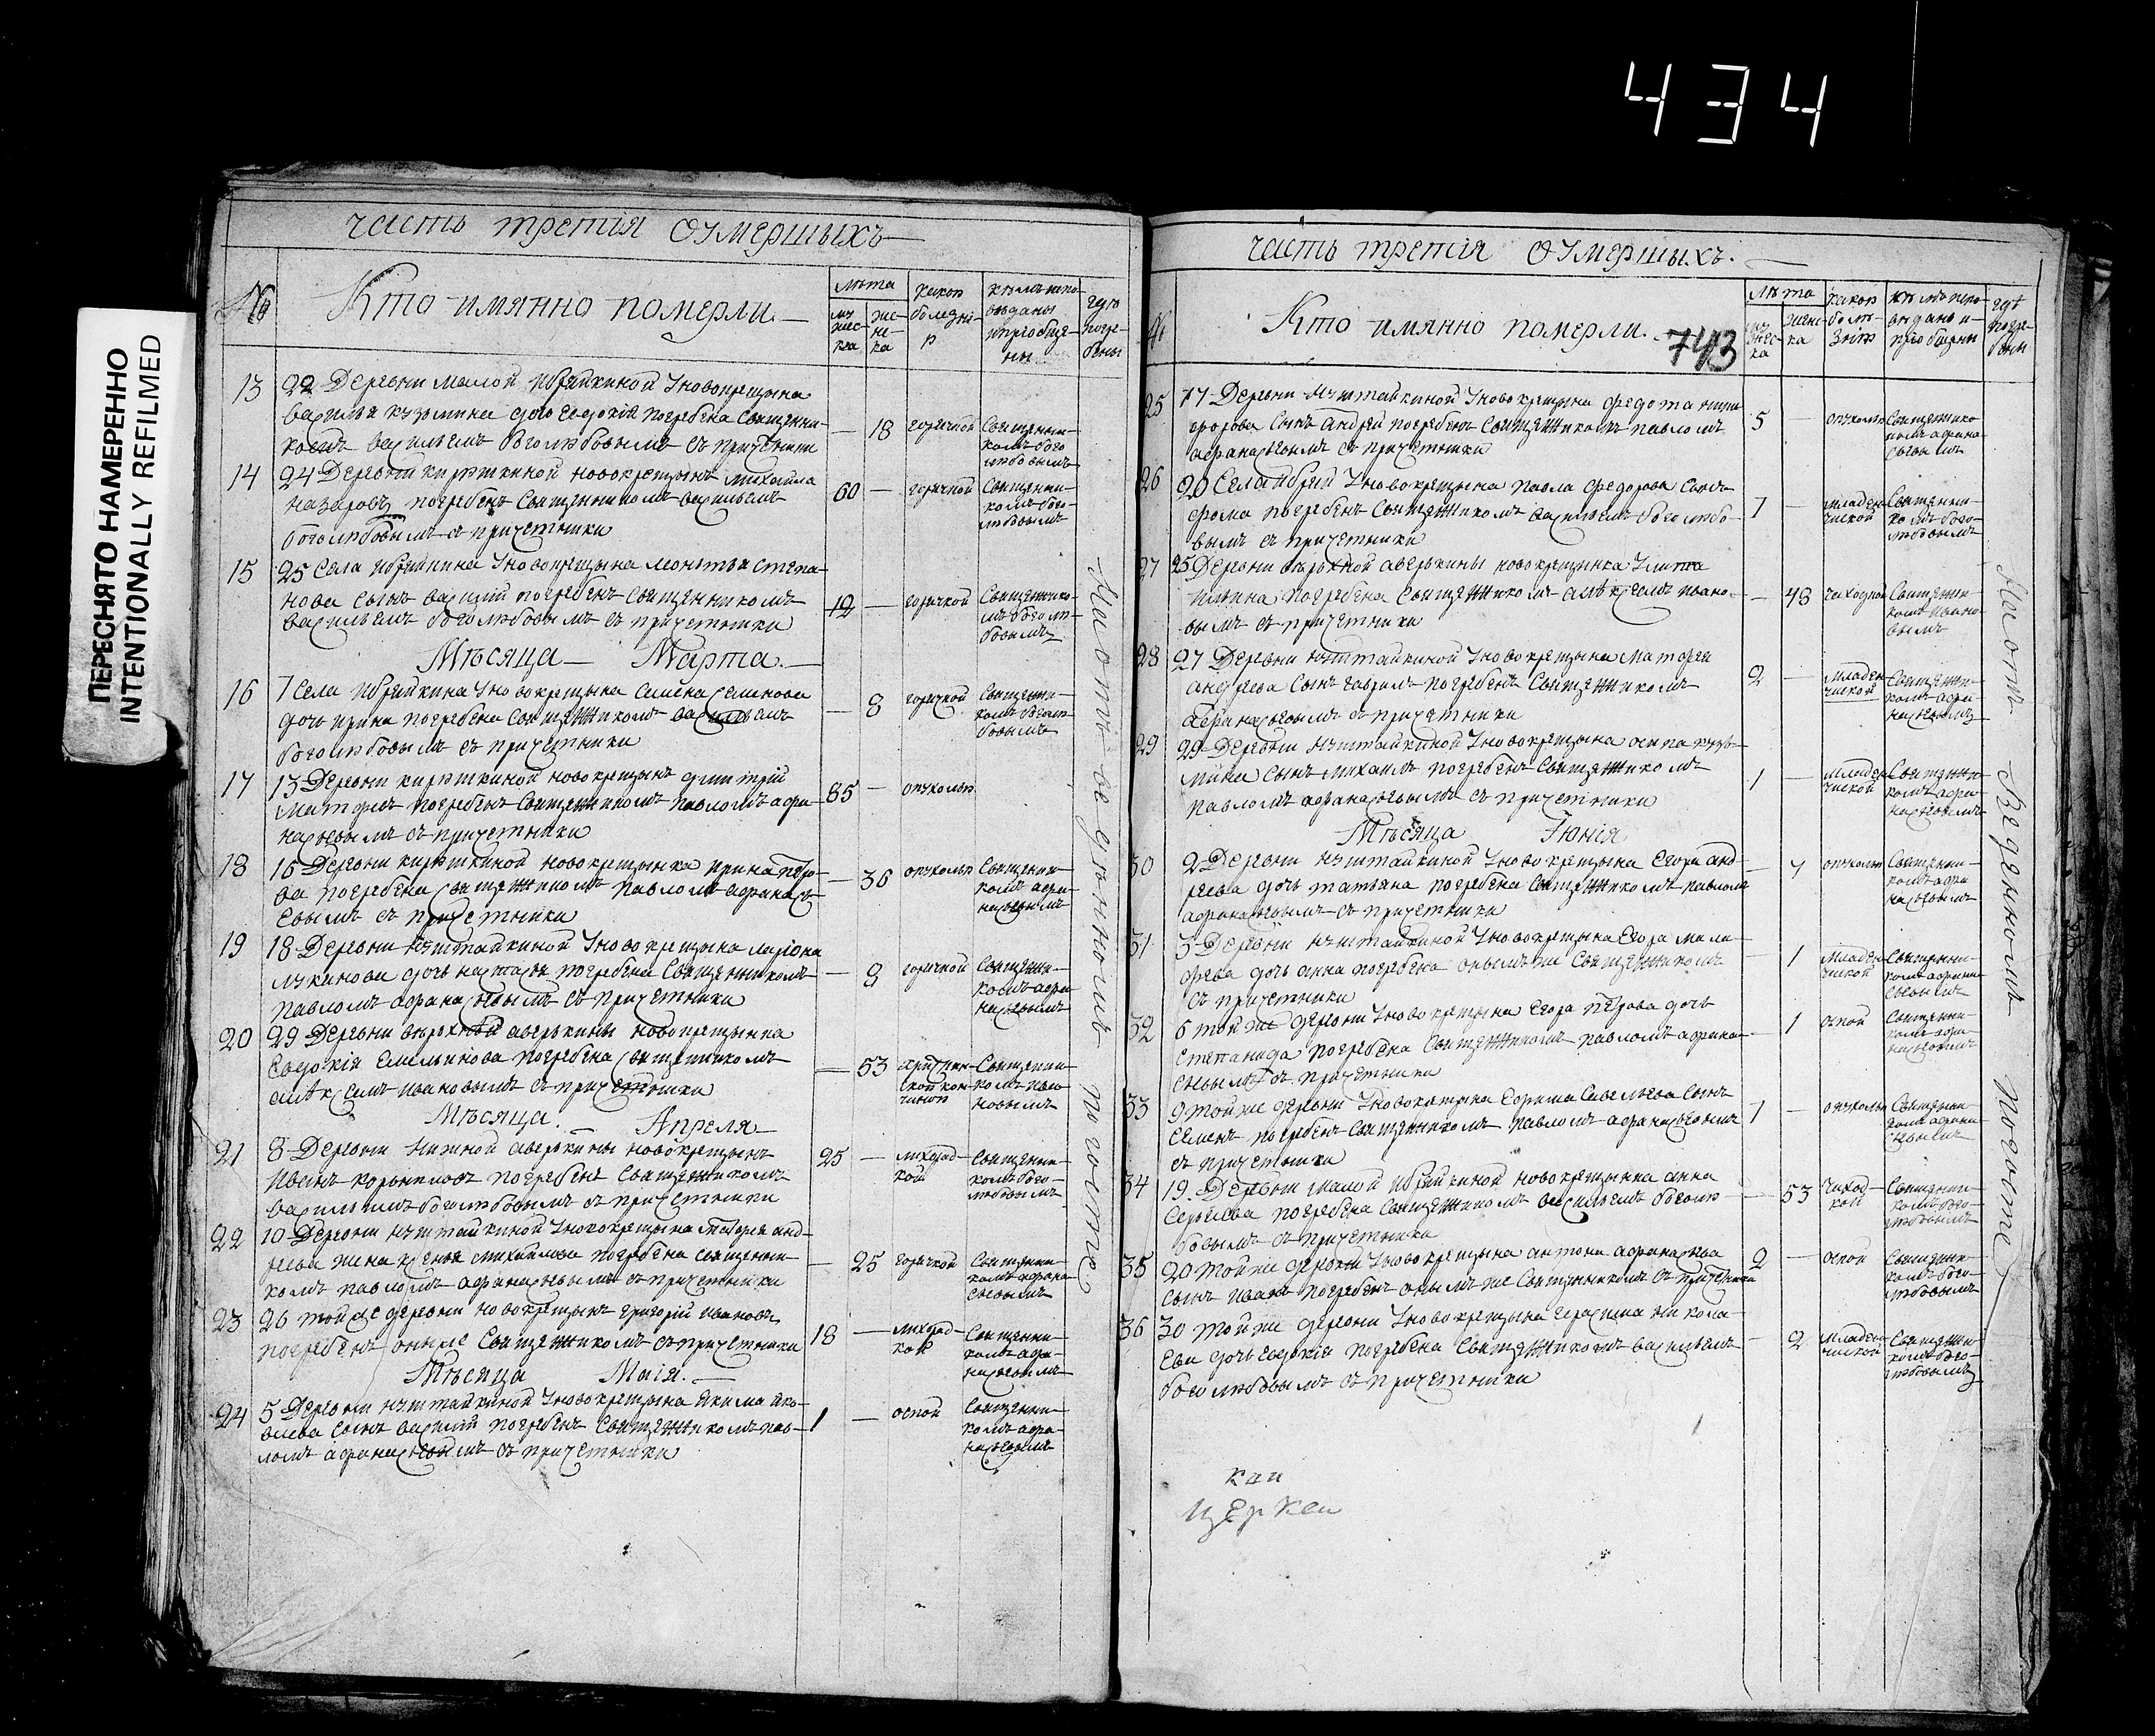 434
ПЕРЕСНЯТО НАМЕРЕННО
INTENTIONALLY REFILMED
часть третїя оумершыхъ
№
Кто имянно померли.
лѣта
мужеска
женска
какою болезнию
кѣмъ исповѣданы и приобщены
где погребены
13 22 Деревни малой Ибряйкиной у новокрещына
василья кузьмина дочь евдокїя погребена священни-
комъ васильемъ боголюбовымъ съ причетники
— 18 горячкой
Священни-
комъ бого
любовымъ
14 24 Деревни кирюшкиной новокрещынъ михайла
назаровъ погребенъ священникомъ васильемъ
боголюбовымъ съ причетники
60 — горячкой
Священни-
комъ бого-
любовымъ
15 25 Села Ибряйкина у новокрещына леонтья степа-
нова сынъ василий погребенъ священникомъ
васильемъ боголюбовымъ съ причетники
12 — горячкой
Священнико-
мъ боголю-
бовымъ
Мѣсяца — Марта. —
16 7 Села Ибряйкина у новокрещына семена семенова
дочь ирина погребена священникомъ васильемъ
боголюбовымъ съ причетники
— 8 горячкой
Священни-
комъ боголю-
бовымъ
17 13 Деревни кирюшкиной новокрещынъ дмитрїй
матфеевъ погребенъ священникомъ павломъ афа-
насьевымъ съ причетники
85 — опухолью
18 16 Деревни кирюшкиной новокрещынка ирина петро-
ва погребена священникомъ павломъ афанась-
евымъ съ причетники
— 36 опухолью
Священни-
комъ афа-
насьевымъ
19 18 Деревни у новокрещына ларїона
лукинова дочь настасья погребена священникомъ
павломъ афанасьевымъ съ причетники
— 8 горячкой
Священни-
комъ афа-
насьевымъ
20 29 Деревни верхней аверькины новокрещынка
Евдокїя Емельянова погребена священникомъ
алѣксѣемъ ивановымъ съ причетники
— 53
Священни-
комъ ива-
новымъ
Мѣсяца. — Апреля —
21 8 Деревни нижной аверькины новокрещынъ
Иванъ корниловъ погребенъ священникомъ
васильемъ боголюбовымъ съ причетники
25 — лихорад-
кой
Священни-
комъ бого-
любовымъ
22 10 Деревни у новокрещына матфея анд-
реева жена ксенья михайлова погребена священни-
комъ павломъ афанасьевымъ съ причетники
— 25 горячкой
Священни-
комъ афана-
сьевымъ
23 26 той же деревни новокрещынъ григорїй ивановъ
погребенъ онымже священникомъ съ причетники
18 — лихорад-
кой
Священни-
комъ афа-
насьевымъ
Мѣсяца Маїя. —
24 5 Деревни у новокрещына якима яко-
влева сынъ василий погребенъ священникомъ пав-
ломъ афанасьевымъ съ причетники
1 — оспой
Священни-
комъ афа-
насьевымъ
На отведенномъ погосте
часть третїя оумершыхъ.
Кто имянно померли.
743
лѣта
25 17 Деревни у новокрещына федота ники-
форова сынъ андрей погребенъ священникомъ павломъ
афанасьевымъ съ причетники
5 — опухолью
Священнико
мъ афана-
сьевымъ
26 20 Села Ибряй у новокрещына павла федорова сынъ
фома погребенъ священникомъ васильемъ боголюбо-
вымъ съ причетники
7 — младен-
ческой
Священни-
комъ бого-
любовымъ
27 25 Деревни верхной аверькины новокрещынка улита
ильина погребена священникомъ алѣксѣемъ ивано-
вымъ съ причетники
— 48 чахоткой
Священни-
комъ ивано-
вымъ
28 27 Деревни у новокрещына матфея
андреева сынъ гаврилъ погребенъ священникомъ
афанасьевымъ съ причетники
2 — младен-
ческой
Священни-
комъ афа-
насьевымъ
29 29 Деревни у новокрещына осипа кузь-
мина сынъ михаилъ погребенъ священникомъ
павломъ афанасьевымъ съ причетники
1 — младен-
ческой
Священни-
комъ афа-
насьевымъ
Мѣсяца Іюнїя
30 2 Деревни у новокрещына Егора анд-
реева дочь татьяна погребена священникомъ павломъ
афанасьевымъ съ причетники
— 4 опухолью
Священни-
комъ афа-
насьевымъ
31 3 Деревни у новокрещына Егора мала-
феева дочь анна погребена онымъ же священникомъ
съ причетники
— 1 младен-
ческой
Священни-
комъ афана-
сьевымъ
32 6 той же деревни у новокрещына Егора петрова дочь
степанида погребена священникомъ павломъ афана-
сьевымъ съ причетники
— 1 оспой
Священни-
комъ афа-
насьевымъ
33 9 той же деревни у новокрещына Ефрема Савельева сынъ
Семенъ погребенъ священникомъ павломъ афанасьевымъ
съ причетники
1 — опухолью
Священни-
комъ афана-
сьевымъ
34 19. Деревни малой Ибряйкиной новокрещынка анна
Сергеева погребена священникомъ васильемъ боголю-
бовымъ съ причетники
— 53 чахот-
кой
Священни-
комъ бого-
любовымъ
35 20 той же деревни у новокрещына антона афанасьева
сынъ иванъ погребенъ онымъ же священникомъ съ причетники
2 — оспой
Священни-
комъ бого-
любовымъ
36 30 той же деревни у новокрещына герасима никола-
ева дочь евдокїя погребена священникомъ васильемъ
боголюбовымъ съ причетники
— 2 младен-
ческой
Священни-
комъ бого-
любовымъ
На отведенномъ погосте
каи
церкви